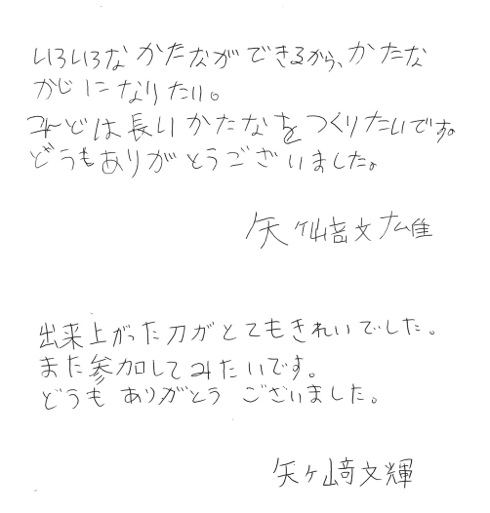 いろいろなかたながができるから、かたな
かじになりたい。
こんどは長いかたなをつくりたいです。
どうもありがとうございました。
矢ケ﨑文雄
出来上がった刀がとてもきれいでした。
また参加してみたいです。
どうもありがとうございました。
矢ケ﨑文輝